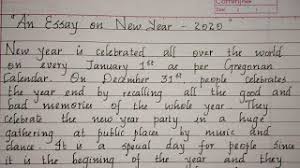 Camlin
"An Essay on New Year - 2020
New year is celebrated all over the world
on every January 1st as per Gregorian
Calendar. On December 31st people celebrates
the year end by recalling all the good and
bad memories of the whole year. They
celebrate the new year party in a huge
gathering at public places by music and
dance. It is a special day for people since
it is the begining of the year and they